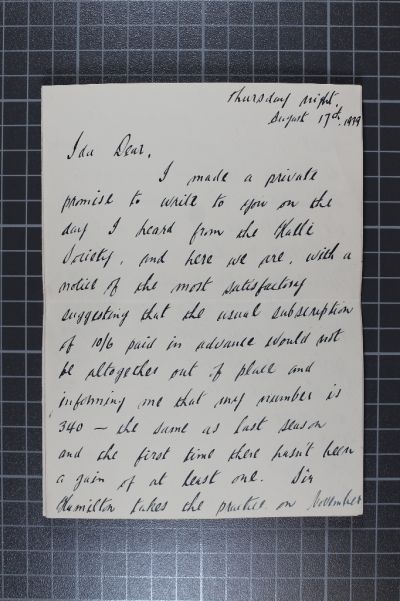 Thursday night.
August 17th. 1939
Ida Dear,
I made a private
promise to write to you on the
day I heard from the Hallé
Society, and here we are, with a
notice of the most satisfactory
suggesting that the usual subscription
of 10/6 paid in advance would not
be altogether out of place and
informing me that my number is
340 – the same as last season
and the first time there hasn't been
a gain of at least one. Sir
Hamilton takes the practice on November